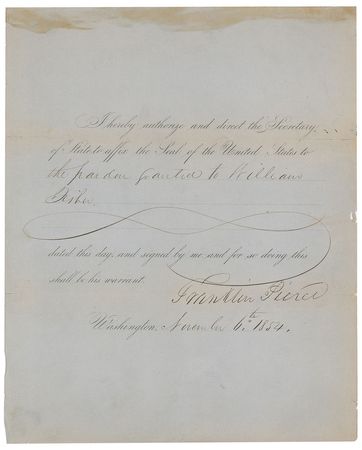 I hereby authorize and direct the Secretary
of State to affix the Seal of the United States to
the pardon granted to William
Fisher.
dated this day, and signed by me and for so doing this
shall be his warrant.
Franklin Pierce
Washington, November 6th 1854.